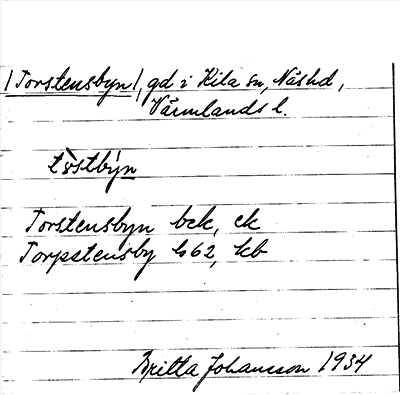 /Torstensbyn/, gd i Kila sn, Näshd,
Värmlands l.
tòstby´n
Torstensbyn bek, ek
Torpstensby h 62, kb
Britta Johansson 1934